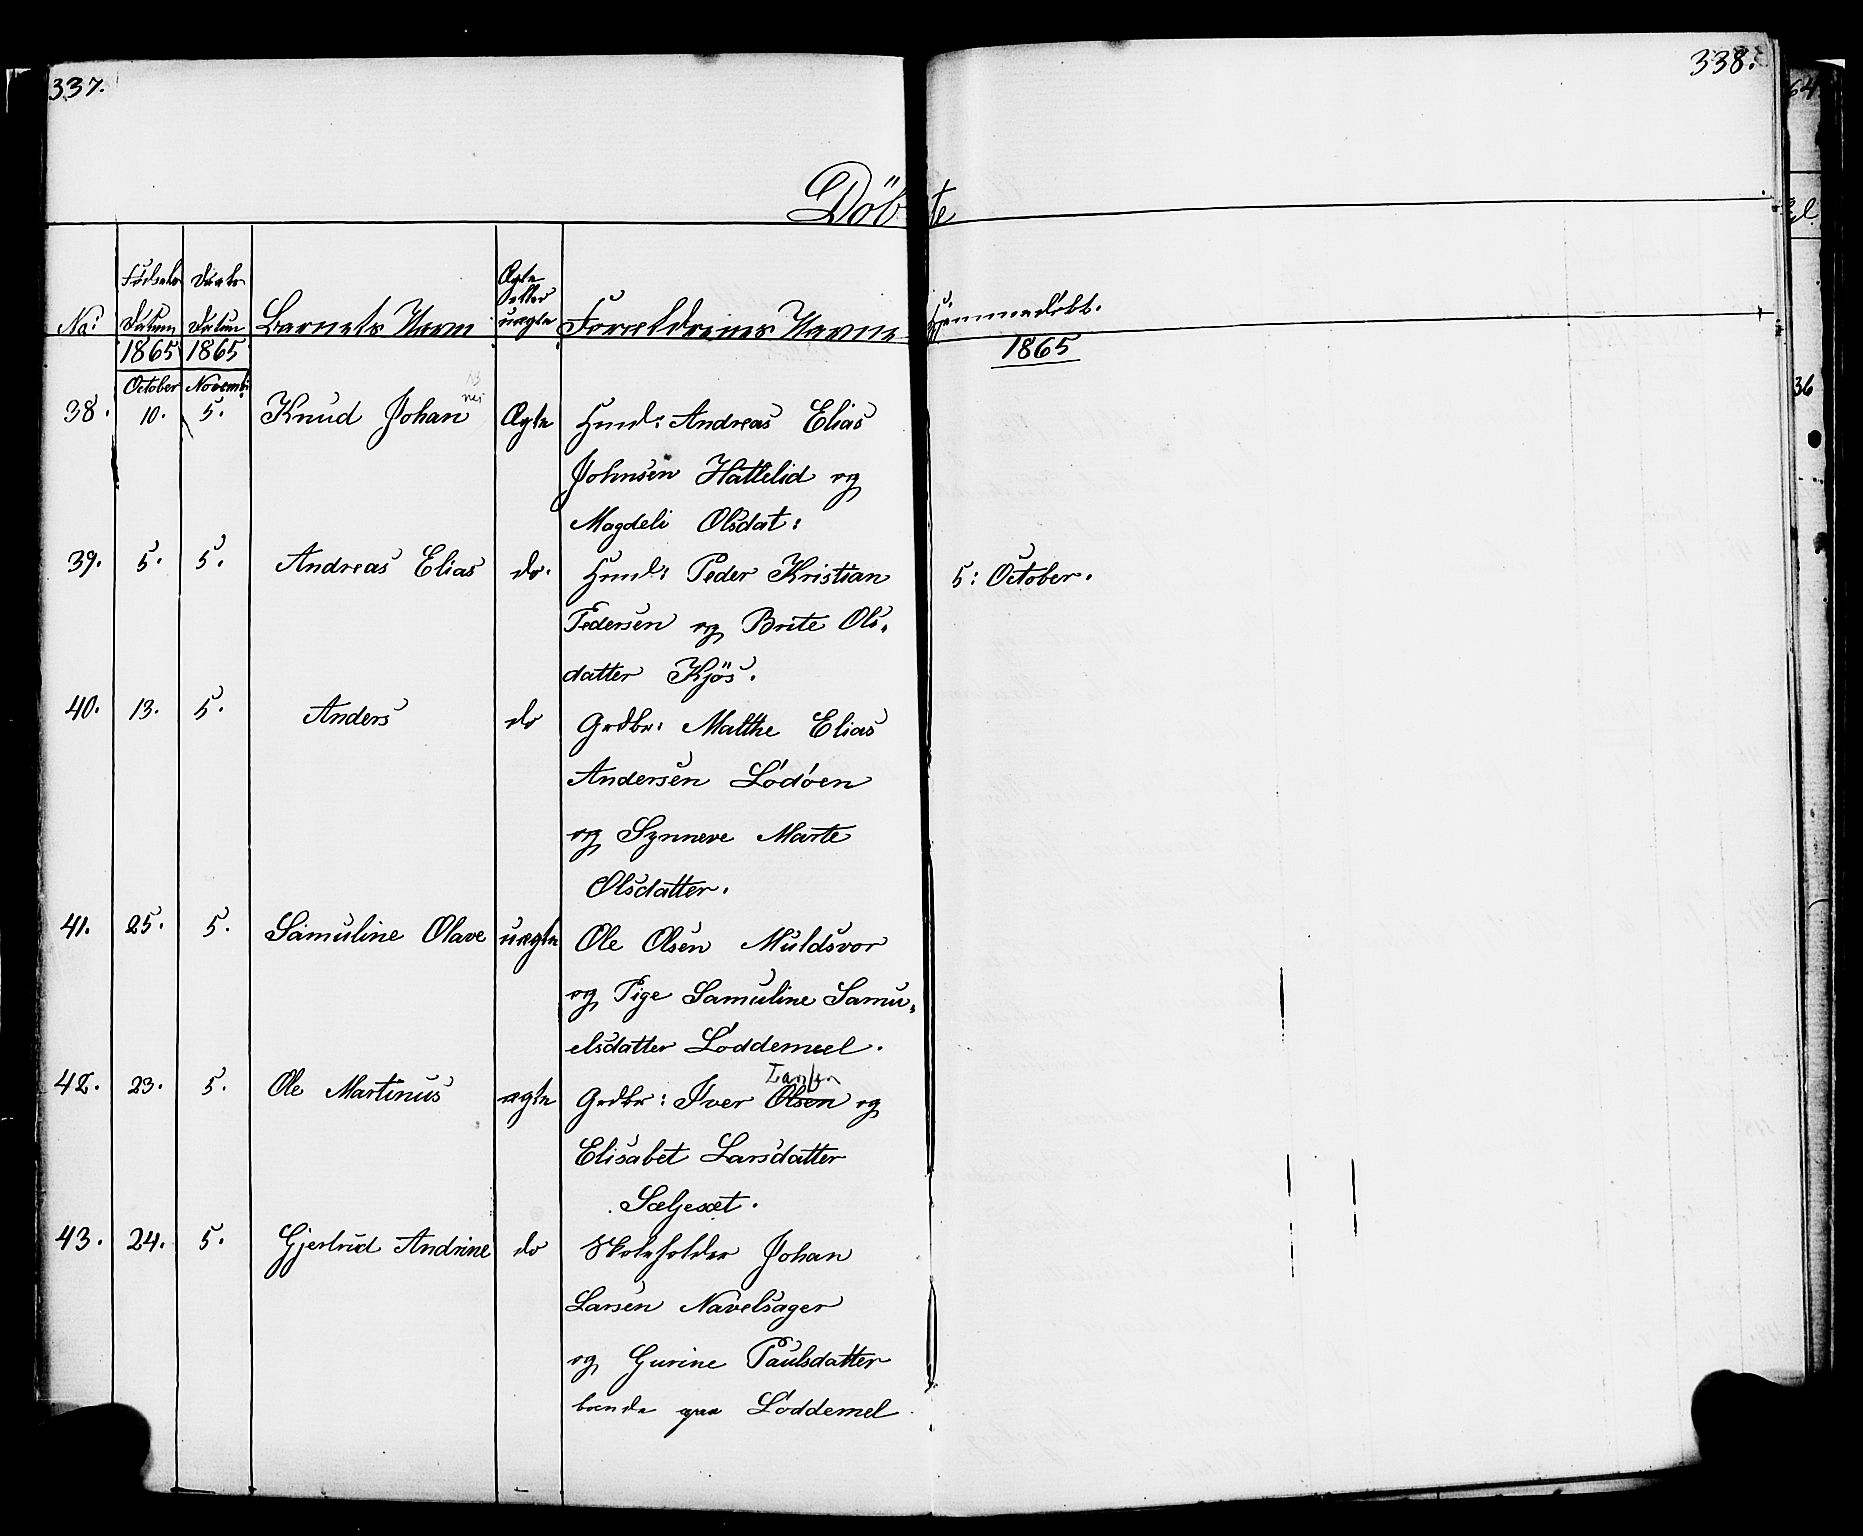 337.
338.
Döbte
No: Fødsels Datum Daabs Datum Barnets Navn Ægte eller uægte Forældrenes Navne Hjemmedöbt.
1865 1865 1865
October Novemb:
38. 10. 5. Knud Johan Ægte Huusm: Andreas Elias
Johnsen Hattelid og
Magdeli Olsdat:
39. 5. 5. Andreas Elias do. Huusm: Peder Kristian 5: October.
Pedersen og Brite Ols-
datter Kjös.
40. 13. 5. Anders do Grdbr: Malthe Elias
Andersen Lödöen
og Synneve Marte
Olsdatter.
41. 25. 5. Samuline Olave uægte Ole Olsen Muldsvor
og Pige Samuline Samu-
elsdatter Loddemel.
Larsen
42. 23. 5. Ole Martinus ægte Grdbr: Iver Olsen og
Elisabet Larsdatter
Sæljesæt.
43. 24. 5. Gjertrud Andrine do Skoleholder Johan
Larsen Navelsager
og Gurine Paulsdatter
boende paa Loddemel